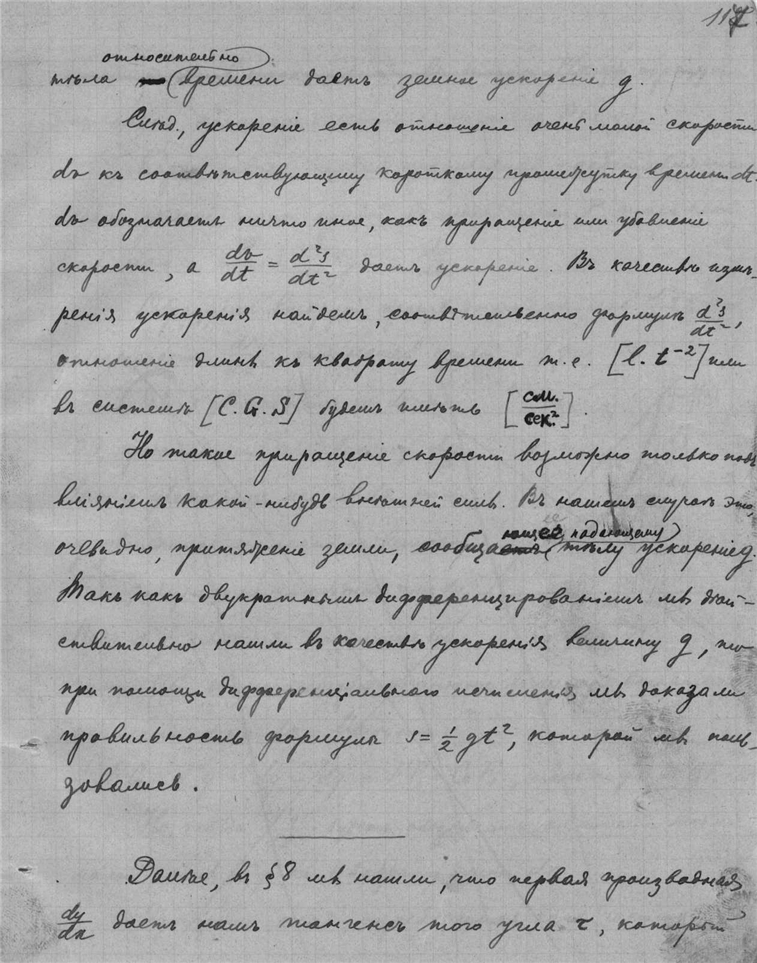 117
относительно
тѣла времени дастъ земное ускореніе g.
Слѣд., ускореніе есть отношеніе очень малой скорости
dv къ соотвѣтствующему короткому промежутку времени dt.
dv обозначаетъ ничто иное, какъ приращеніе или убавленіе
скорости, а dv/dt = d²s/dt² даетъ ускореніе. Въ качествѣ измѣ-
ренія ускоренія найдемъ, соотвѣтственно формулѣ d²s/dt²,
отношеніе длины къ квадрату времени т.е. [l. t⁻²] или
въ системѣ [C.G.S] будемъ имѣть [см./сек.²].
Но такое приращеніе скорости возможно только подъ
вліяніемъ какой-нибудь внѣшней силы. Въ нашемъ случаѣ это,
ющее падающему
очевидно, притяженіе земли, сообща тѣлу ускореніе g.
Такъ какъ двукратнымъ дифференцированіемъ мы дѣй-
ствительно нашли въ качествѣ ускоренія величину g, то
при помощи дифференціальнаго исчисленія мы доказали
правильность формулы s = ½ gt², которой мы поль-
зовались.
Далѣе, въ §8 мы нашли, что первая производная
dy/dx даетъ намъ тангенсъ того угла τ, который